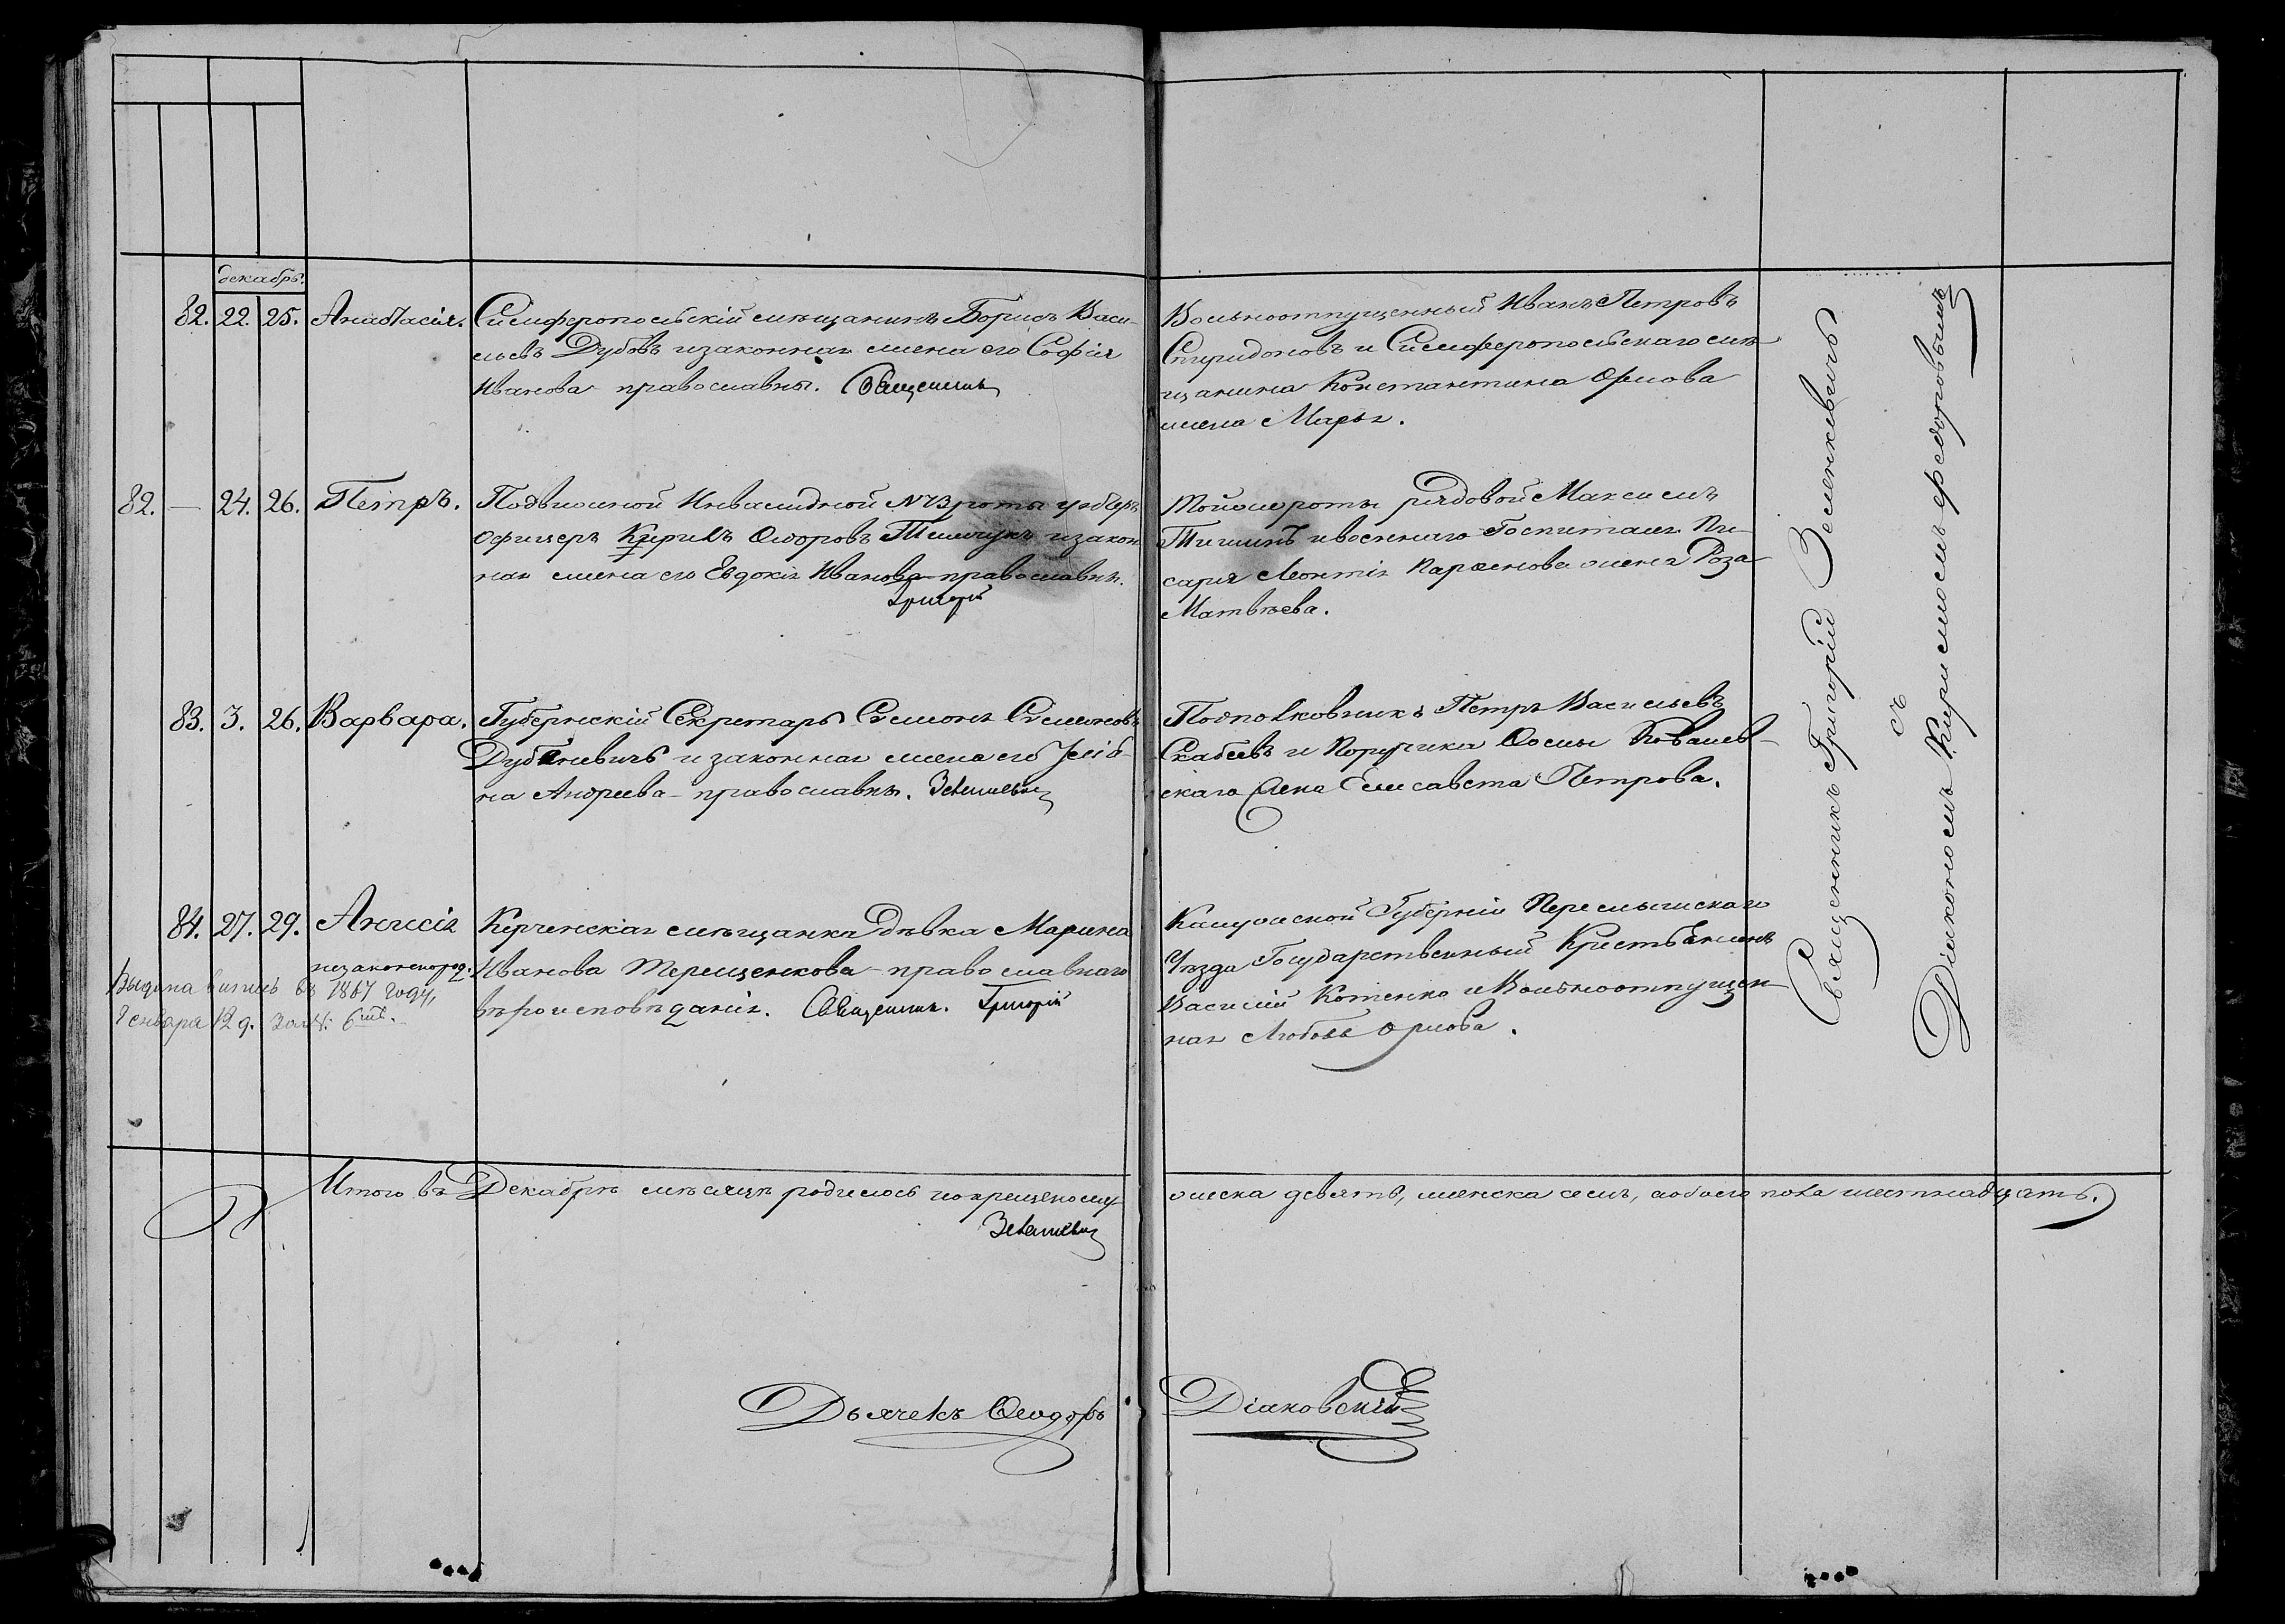 декабрь.
82. 22. 25. Анастасія.
Симферопольскій мѣщанинъ Борисъ Васи-
льевъ Дубовъ и законная жена его Софія
Иванова православны. Священникъ
Вольноотпущенный Иванъ Петровъ
Спиридоновъ и Симферопольскаго мѣ-
щанина Константина Орлова
жена Марья.
82. — 24. 26. Петръ.
Подвижной Инвалидной №13 роты унтеръ
офицеръ Кирилъ Ѳедоровъ и закон
ная жена его Евдокія Иванова православны.
Григорій
Тойже роты рядовой Максимъ
Тишинъ и военнаго Госпиталя Пи-
саря Леонтія Парѳенова жена Роза
Матвѣева.
83. 3. 26. Варвара.
Губернскій Секретарь Симонъ Симоновъ
и законная жена его Юлія-
на Андреева православны. Зеленкевичъ
Подполковникъ Петръ Васильевъ
Скабеевъ и Поручика Ѳомы Ковалев-
скаго жена Елисавета Петрова.
84. 27. 29. Анисія
незаконород.
Керченская мѣщанка дѣвка Марина
Иванова Терещенкова православнаго
вѣроисповѣданія. Священник. Григорій
Калужской Губерніи Перемышльскаго
Уѣзда Государственный Крестьянинъ
Василій Котенко и Вольноотпущен
ная Любовь Орлова.
Выдана выпись въ 1867 году,
Генваря 12 д. за №: 6
Священникъ Григорій Зеленкевичъ
съ
Діакономъ Федоровымъ
Итого въ Декабрѣ мѣсяцѣ родилось и окрещено му-
жеска девять, женска семь, а обоего пола шестнадцать.
Зеленкевичъ
Дьячекъ Ѳеодоръ
Діаковскій